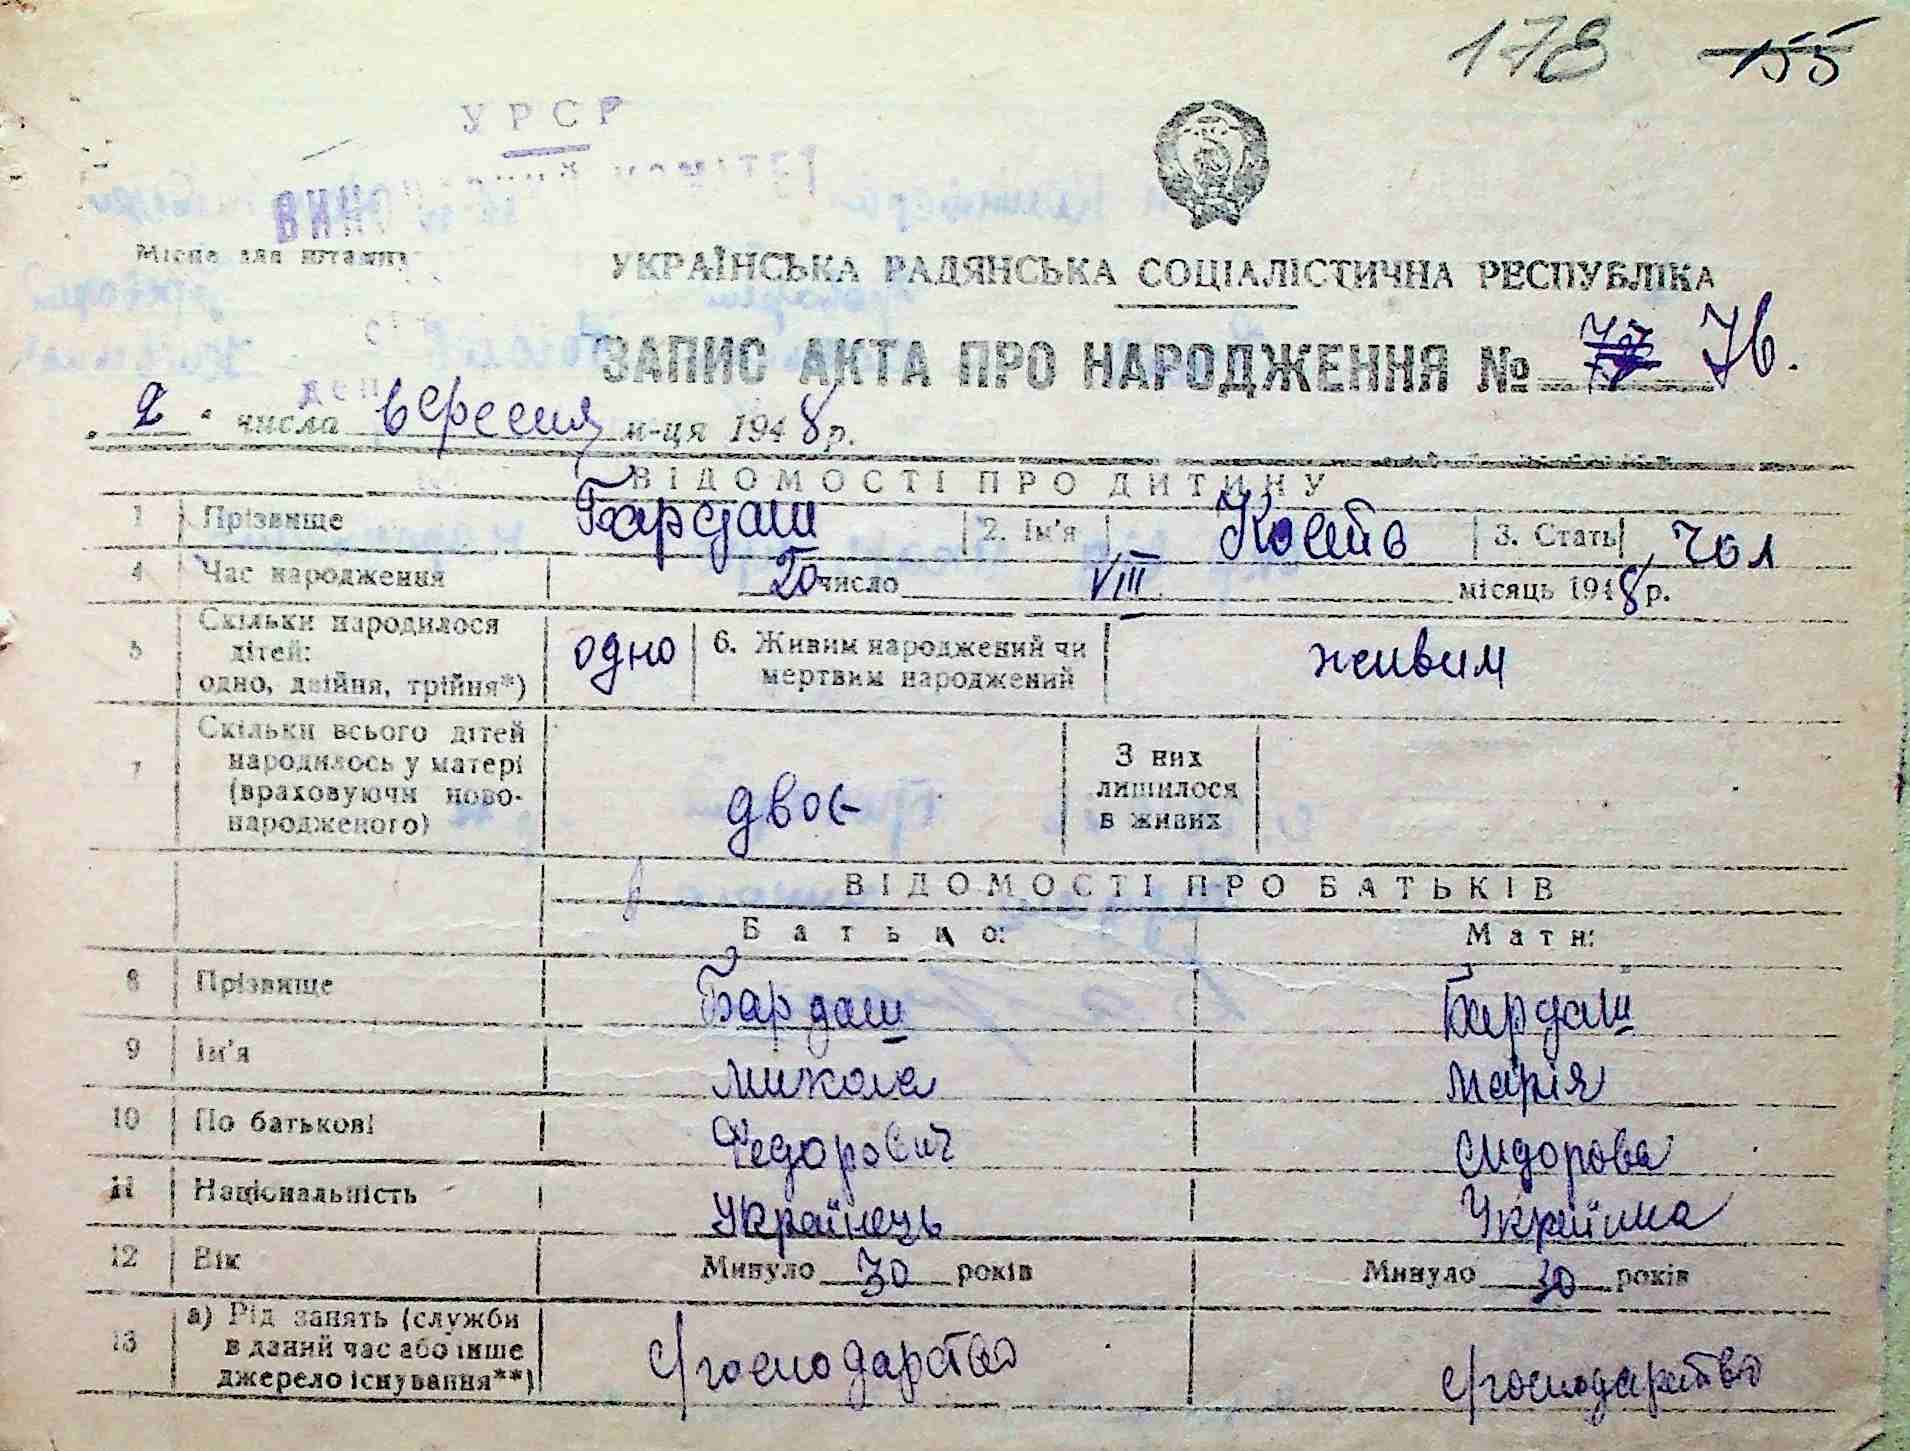 178 155
УРСР
Місце для штампу
УКРАЇНСЬКА РАДЯНСЬКА СОЦІАЛІСТИЧНА РЕСПУБЛІКА
ЗАПИС АКТА ПРО НАРОДЖЕННЯ № 77 76.
„ 2 " числа вересня м-ця 1948 р.
ВІДОМОСТІ ПРО ДИТИНУ
1 Прізвище Бардаш 2. Ім'я 3. Стать чол
4 Час народження 20 число VIII місяць 1948 р.
5 Скільки народилося
дітей:
одно, двійня, трійня*) одно 6. Живим народжений чи
мертвим народжений живим
7 Скільки всього дітей
народилось у матері
(враховуючи ново-
народженого) двоє З них
лишилося
в живих
ВІДОМОСТІ ПРО БАТЬКІВ
Батько: Мати:
8 Прізвище Бардаш Бардаш
9 Ім'я Микола Марія
10 По батькові Федорович Сидорова
11 Національність Українець Українка
12 Вік Минуло 30 років Минуло 30 років
13 а) Рід занять (служби
в даний час або інше
джерело існування**) с/господарство с/господарство